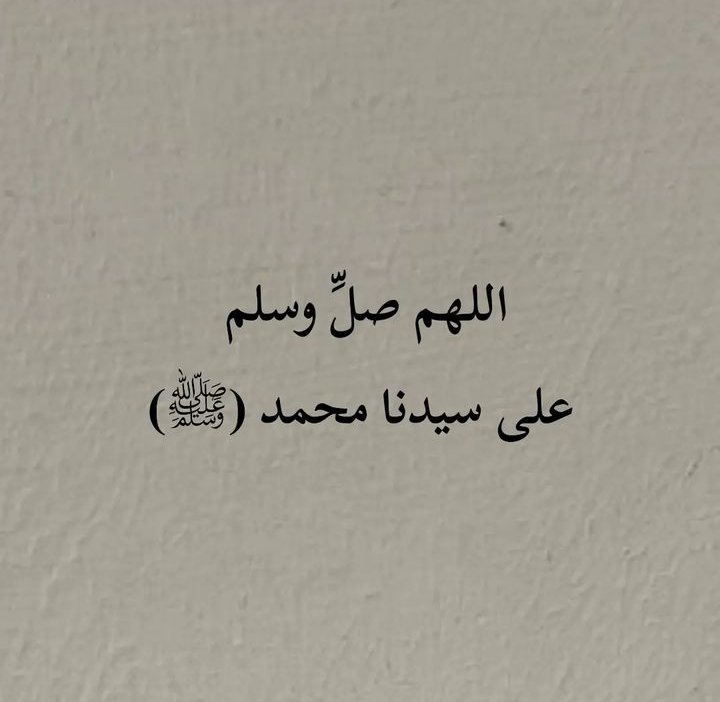 اللهم صلِّ وسلم
على سيدنا محمد (ﷺ)